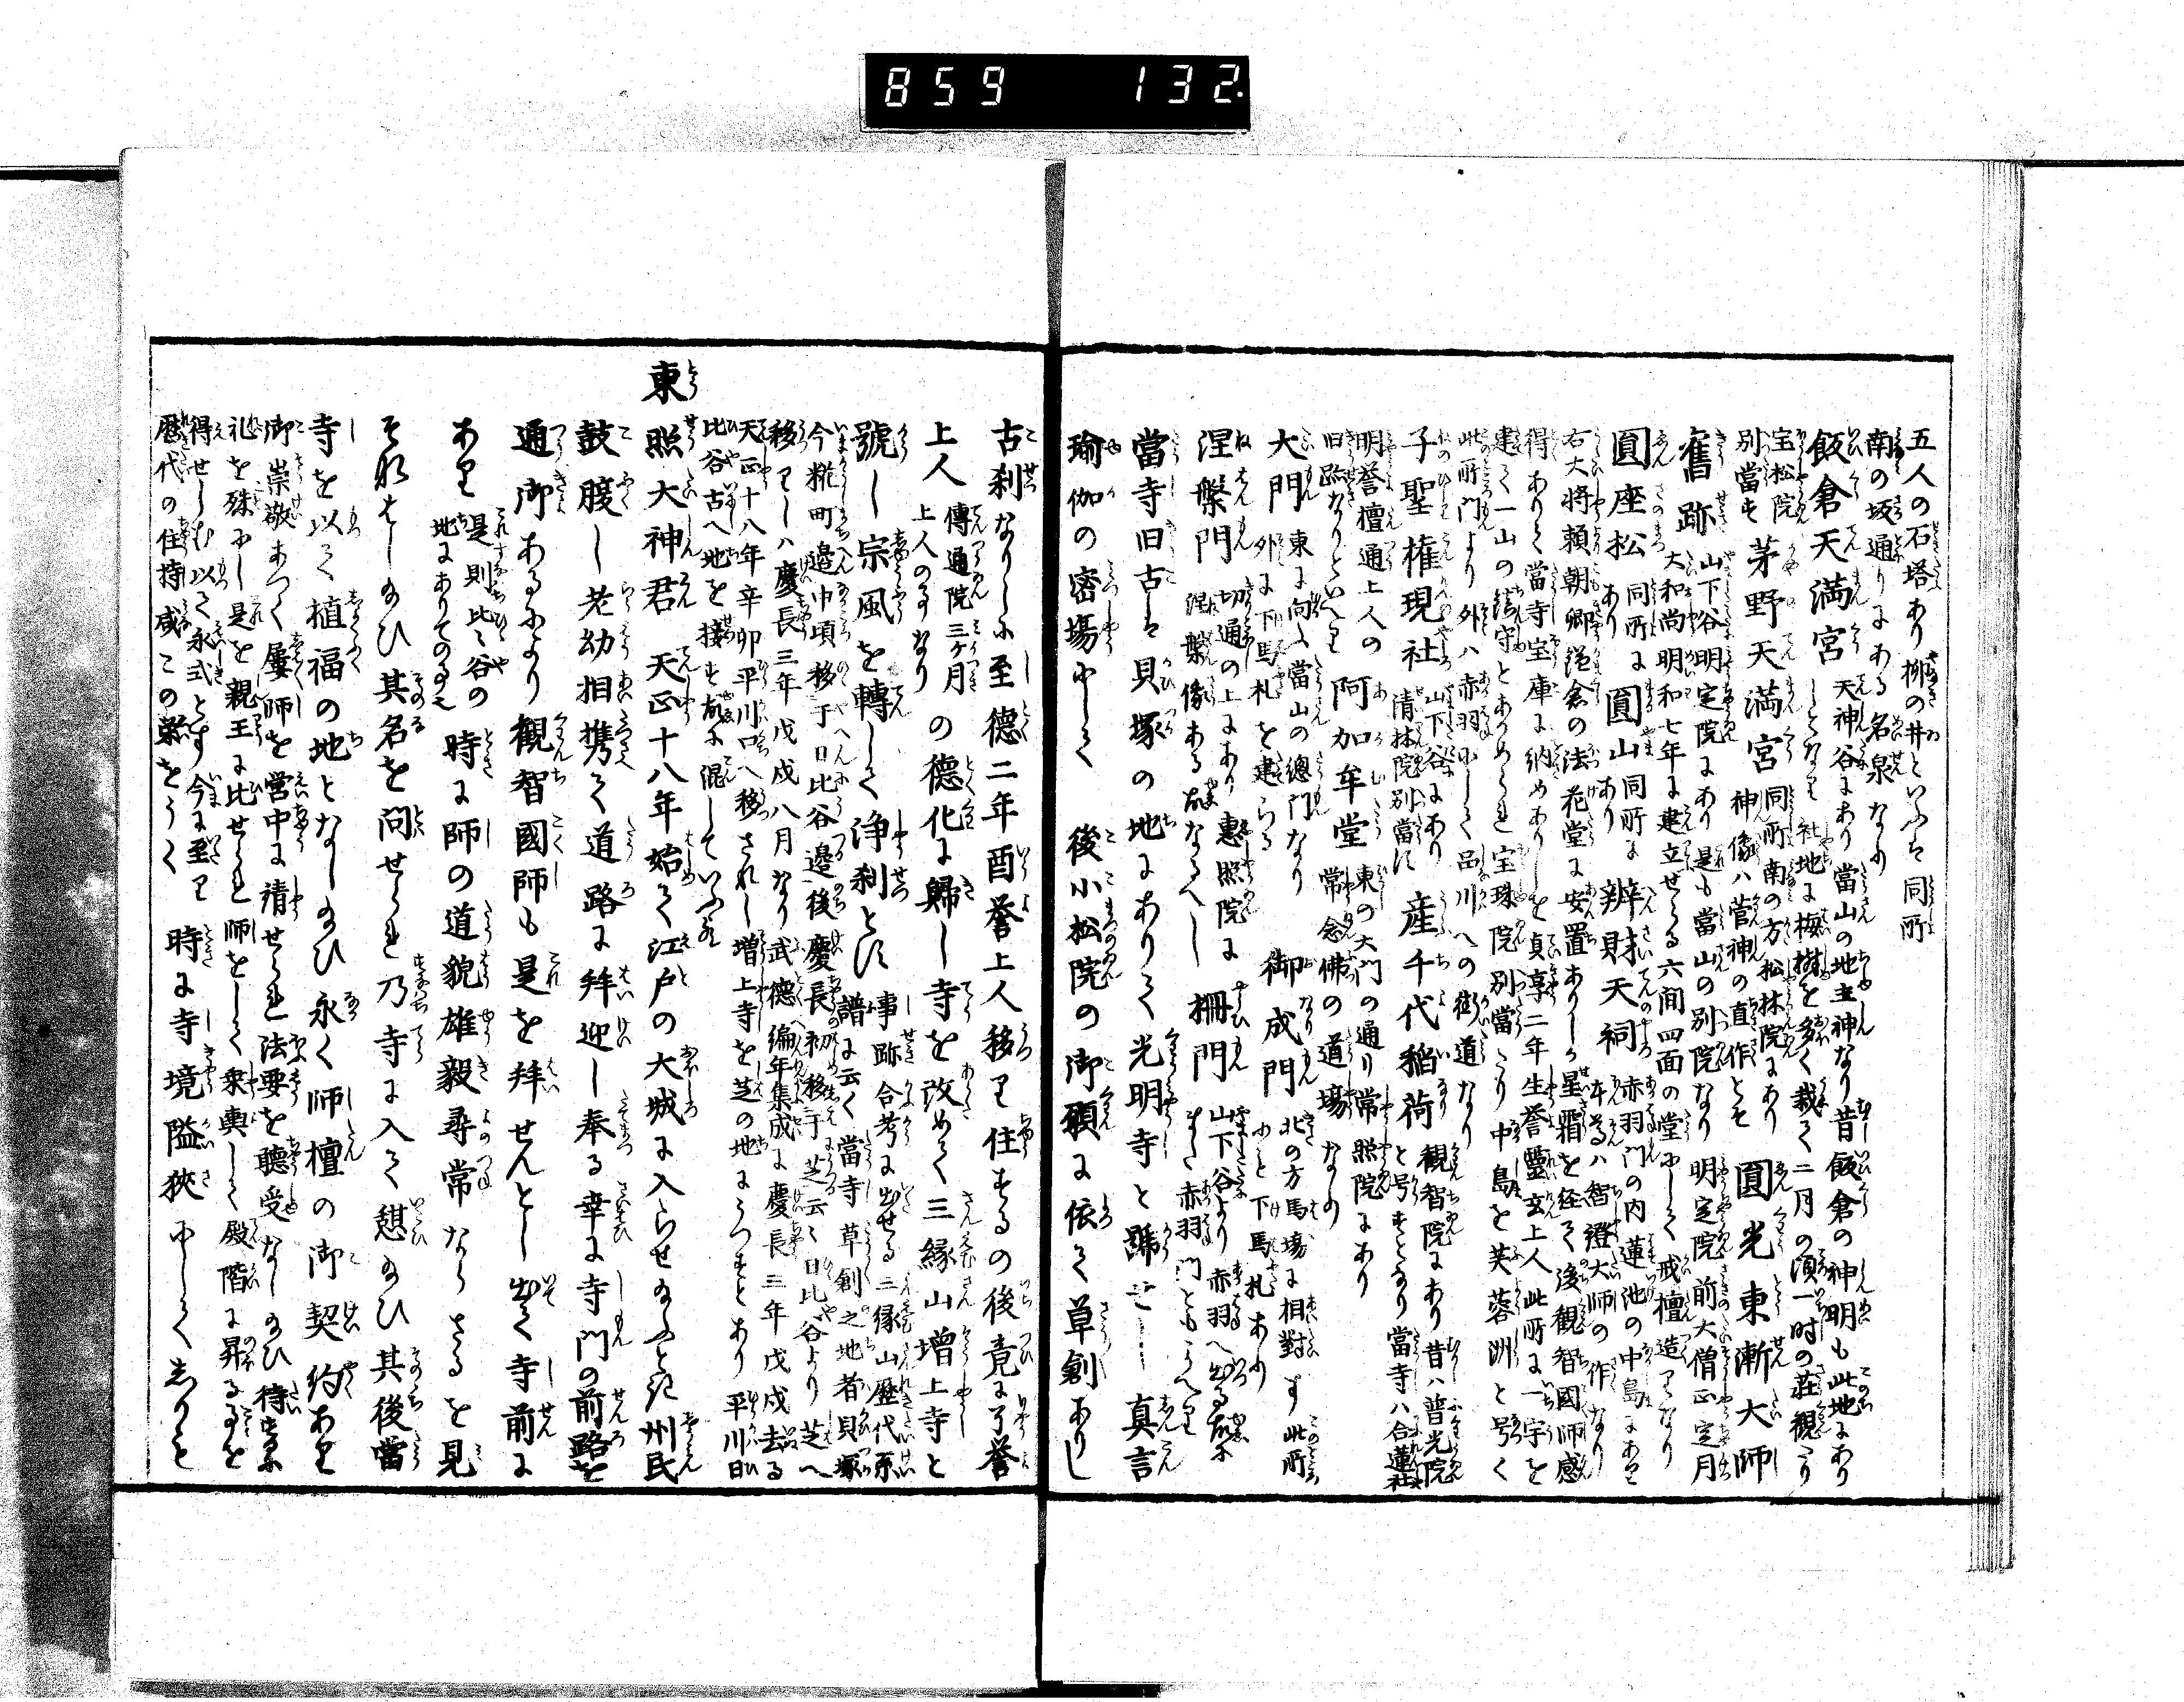 859 132.
五人の石塔あり柳の井といふは同所
南の坂通りにある名泉なり
飯倉天満宮 天神谷にあり當山の地主神なり昔飯倉の神明も此地にあり
しとなり社地に梅樹を多く栽て二月の頃一時の荘観たり
宝松院
別當す 茅野天満宮 同所南の方松林院にあり
神像ハ菅神の直作とそ 圓光東漸大師
舊跡 山下谷明定院にあり是も當山の別院なり明定院前大僧正定月
大和尚明和七年に建立せらる六間四面の堂にして戒檀造りなり
圓座松 同所に
あり 圓山 同所に
あり 辨財天祠 赤羽門の内蓮池の中島にあり
本尊ハ智證大師の作なり
右大将頼朝卿鎌倉の法花堂に安置ありしか星霜を経て後観智國師感
得ありて當寺宝庫に納めありしを貞享二年生誉霊玄上人此所に一宇を
建て一山の鎮守とあかめらる宝珠院別當たり中島を芙蓉洲と号く
此所門より外ハ赤羽にして品川への街道なり
子聖権現社 山下谷にあり
清林院別當に 産千代稲荷 観智院にあり昔ハ普光院
と号すとなり當寺ハ合蓮社
明誉檀通上人の
旧跡なりといへり 阿加牟堂 東の大門の通り常照院にあり
常念佛の道場なり
大門 東に向ふ當山の總門なり
外に下馬札を建らる 御成門 北の方馬場に相對す此所
にも下馬札あり
涅槃門 切通の上にあり惠照院に
涅槃像ある故なるへし 柵門 山下谷より赤羽へ出る故に
また赤羽門ともいへり
當寺旧古は貝塚の地にありて光明寺と號し真言
瑜伽の密場にして後小松院の御願に依て草創ありし
古刹なりしに至徳二年酉誉上人移り住するの後竟に了誉
上人 傳通院三ヶ月
上人の事なり の徳化に歸し寺を改めて三縁山増上寺と
號し宗風を轉して浄刹とす 事跡合考に出せる三縁山歴代系
譜に云く當寺草創之地者貝塚
今糀町邉巾頃移于日比谷邉後慶長初移于芝云々日比谷より芝へ
移りしハ慶長三年戊戌八月なり武徳編年集成に慶長三年戊戌去る
天正十八年辛卯平川口へ移されし増上寺を芝の地にうつすとあり平川日
比谷古へ地を接す故に混していふ歟
東照大神君天正十八年始て江戸の大城に入らせ給ふとき州民
鼓腹し老幼相携て道路に拜迎し奉る幸に寺門の前路を
通御あるにより観智國師も是を拜せんとし出て寺前に
あり 是則比々谷の
地にありての事也 時に師の道貌雄毅尋常ならさるを見
そなはし給ひ其名を問せられ乃寺に入て憇給ひ其後當
寺を以て植福の地となし給ひ永く師檀の御契約あり
御崇敬あつく屢師を営中に請せられ法要を聽受なし給ひ待
礼を殊にし是を親王に比せられ師をして衆輿して殿階に昇る事を
得せしむ以て永式とす今に至り
歴代の住持咸この榮をうく 時に寺境隘狭にして